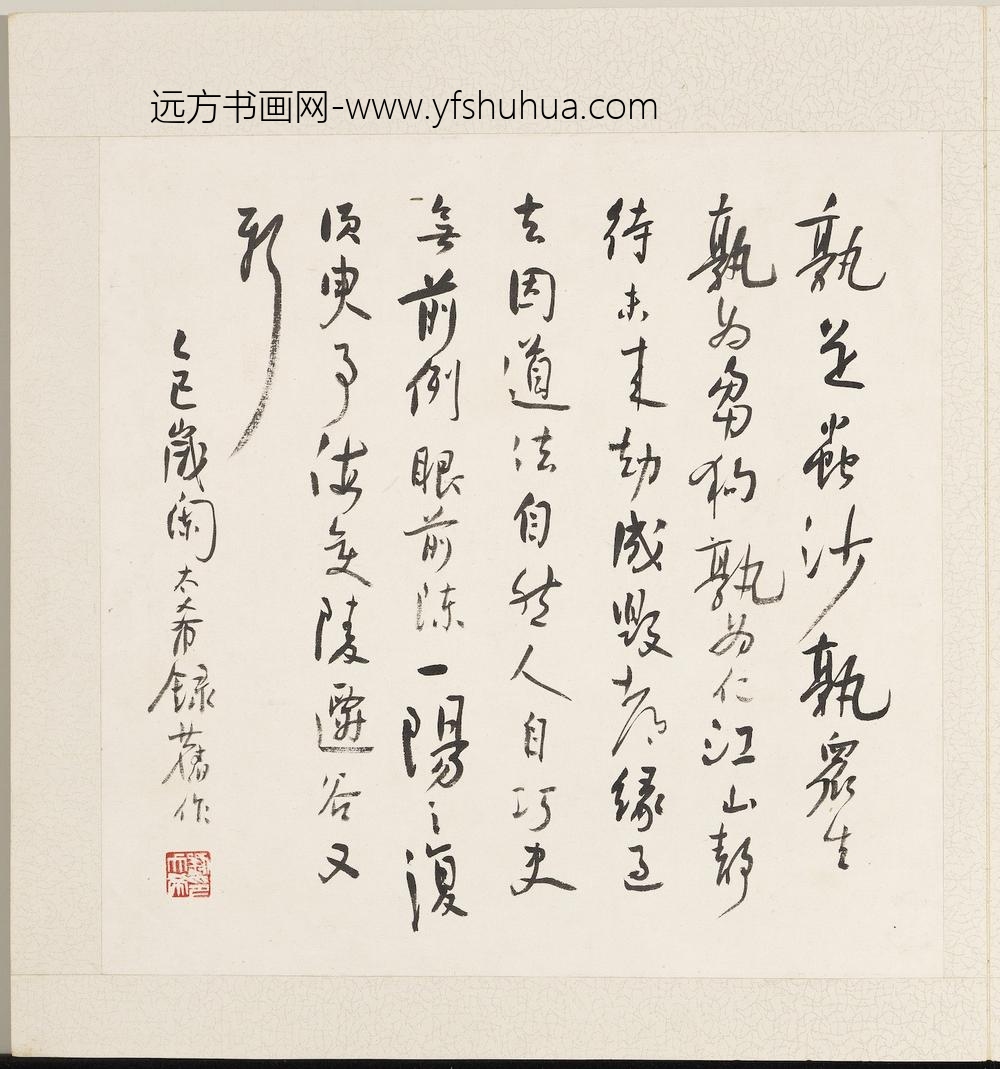 远方书画网-www.yfshuhua.com
孰是蟲沙孰眾生
孰為芻狗孰為仁江山靜
待未來劫成毀都緣過
去因道法自然人自巧史
無前例眼前陳一陽之復
須臾事海變陵遷谷又
新
乙巳歲闌太希錄舊作